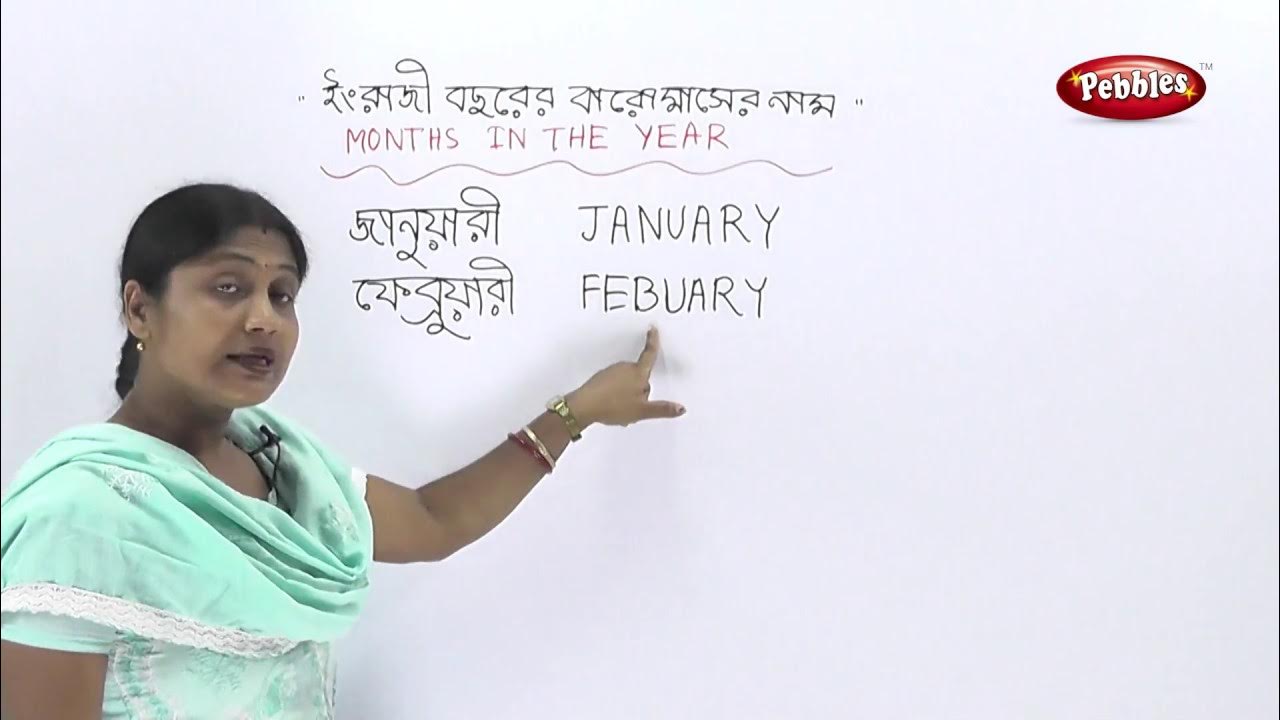 " ইংরাজী বছরের বারোমাসের নাম "
MONTHS IN THE YEAR
জানুয়ারী JANUARY
ফেব্রুয়ারী FEBUARY
Pebbles™